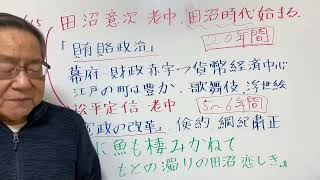 田沼意次 老中、田沼時代始まる
20年間
「賄賂政治」
幕府・財政赤字→貨幣経済中心
江戸の町は豊か、歌舞伎、浮世絵
松平定信 老中 5〜6年間
政の改革」 倹約 綱紀粛正
に魚も棲みかねて
もとの濁りの田沼恋しき』